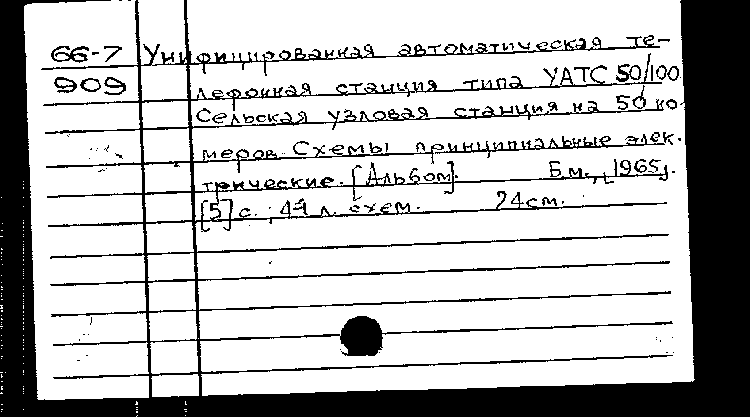 66-7 Унифицированная автоматическая те-
909 лефонная станция типа УАТС 50/100
Сельская узловая станция на 50 но-
меров. Схемы принципиальные элек.
трические. [Альбом]. Б.м., [1965].
[5] с.; 44 л. схем. 24см.